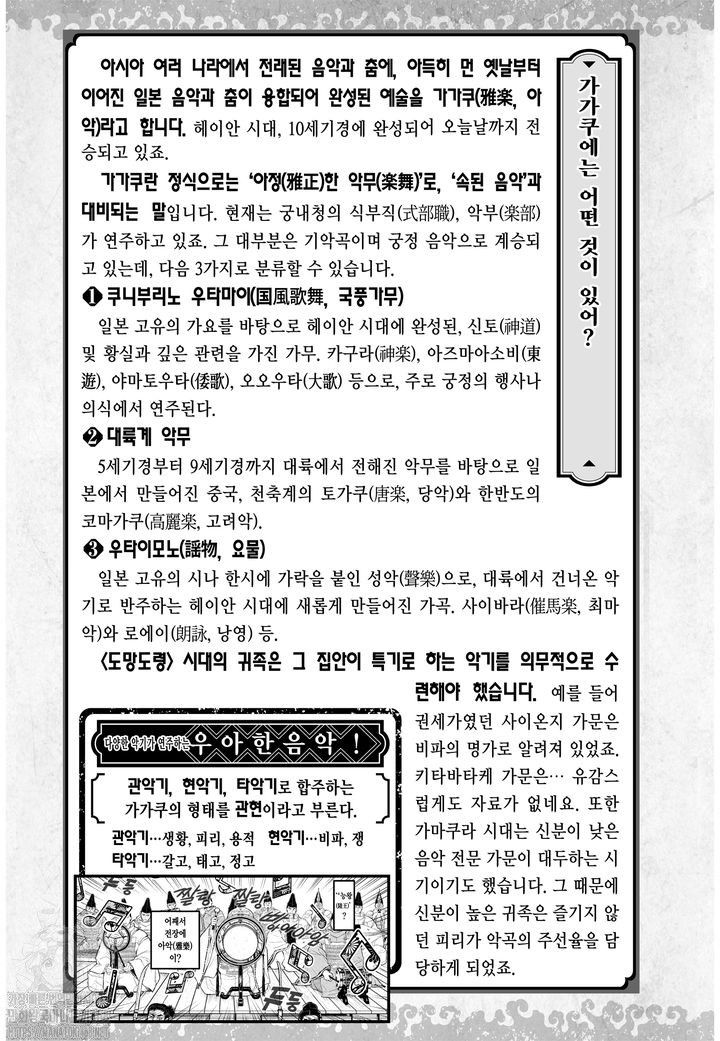 가가쿠에는 어떤 것이 있어?
아시아 여러 나라에서 전래된 음악과 춤에, 아득히 먼 옛날부터
이어진 일본 음악과 춤이 융합되어 완성된 예술을 가가쿠(雅楽, 아
악)라고 합니다. 헤이안 시대, 10세기경에 완성되어 오늘날까지 전
승되고 있죠.
가가쿠란 정식으로는 ‘아정(雅正)한 악무(楽舞)’로, ‘속된 음악’과
대비되는 말입니다. 현재는 궁내청의 식부직(式部職), 악부(楽部)
가 연주하고 있죠. 그 대부분은 기악곡이며 궁정 음악으로 계승되
고 있는데, 다음 3가지로 분류할 수 있습니다.
❶ 쿠니부리노 우타마이(国風歌舞, 국풍가무)
일본 고유의 가요를 바탕으로 헤이안 시대에 완성된, 신토(神道)
및 황실과 깊은 관련을 가진 가무. 카구라(神楽), 아즈마아소비(東
遊), 야마토우타(倭歌), 오오우타(大歌) 등으로, 주로 궁정의 행사나
의식에서 연주된다.
❷ 대륙계 악무
5세기경부터 9세기경까지 대륙에서 전해진 악무를 바탕으로 일
본에서 만들어진 중국, 천축계의 토가쿠(唐楽, 당악)와 한반도의
코마가쿠(高麗楽, 고려악).
❸ 우타이모노(謡物, 요물)
일본 고유의 시나 한시에 가락을 붙인 성악(聲樂)으로, 대륙에서 건너온 악
기로 반주하는 헤이안 시대에 새롭게 만들어진 가곡. 사이바라(催馬楽, 최마
악)와 로에이(朗詠, 낭영) 등.
〈도망도령〉 시대의 귀족은 그 집안이 특기로 하는 악기를 의무적으로 수
련해야 했습니다. 예를 들어
권세가였던 사이온지 가문은
비파의 명가로 알려져 있었죠.
키타바타케 가문은… 유감스
럽게도 자료가 없네요. 또한
가마쿠라 시대는 신분이 낮은
음악 전문 가문이 대두하는 시
기이기도 했습니다. 그 때문에
신분이 높은 귀족은 즐기지 않
던 피리가 악곡의 주선율을 담
당하게 되었죠.
다양한 악기가 연주하는 우아한 음악!
관악기, 현악기, 타악기로 합주하는
가가쿠의 형태를 관현이라고 부른다.
관악기…생황, 피리, 용적 현악기…비파, 쟁
타악기…갈고, 태고, 정고
두둥
짤랑
짤랑
어째서
전장에
아악(雅樂)
이?
두둥